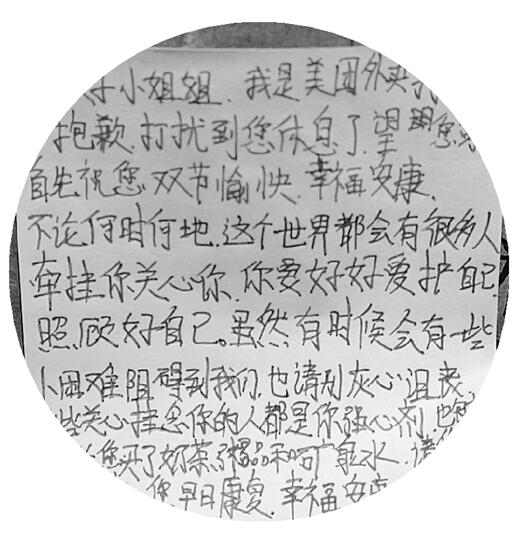 小姐姐.我是美团外卖
抱歉.打扰到您休息了.望
首先祝您.双节愉快.幸福安康.
不论何时何地.这个世界都会有很多人
牵挂你关心你.你要好好爱护自己
照顾好自己。虽然有时候会有一些
小困难阻碍到我们.也请别灰心沮丧
些关心挂念你的人都是你强心剂.
您买了奶茶 和矿泉水.
早日康复.幸福安康